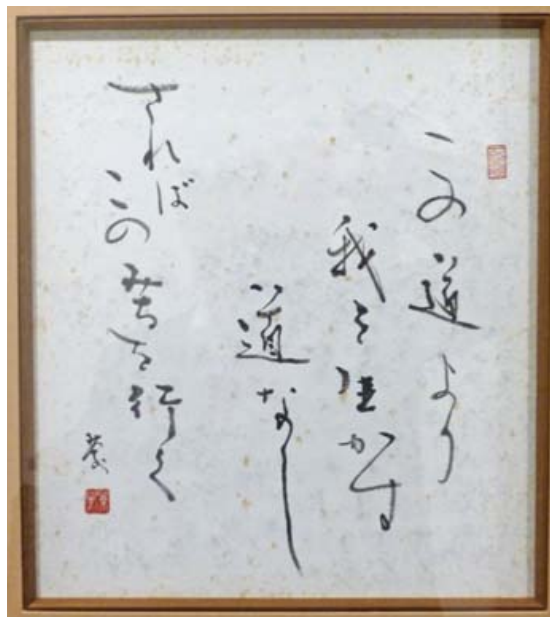 この道より
我を生かす
道なし
されば
このみちを行く